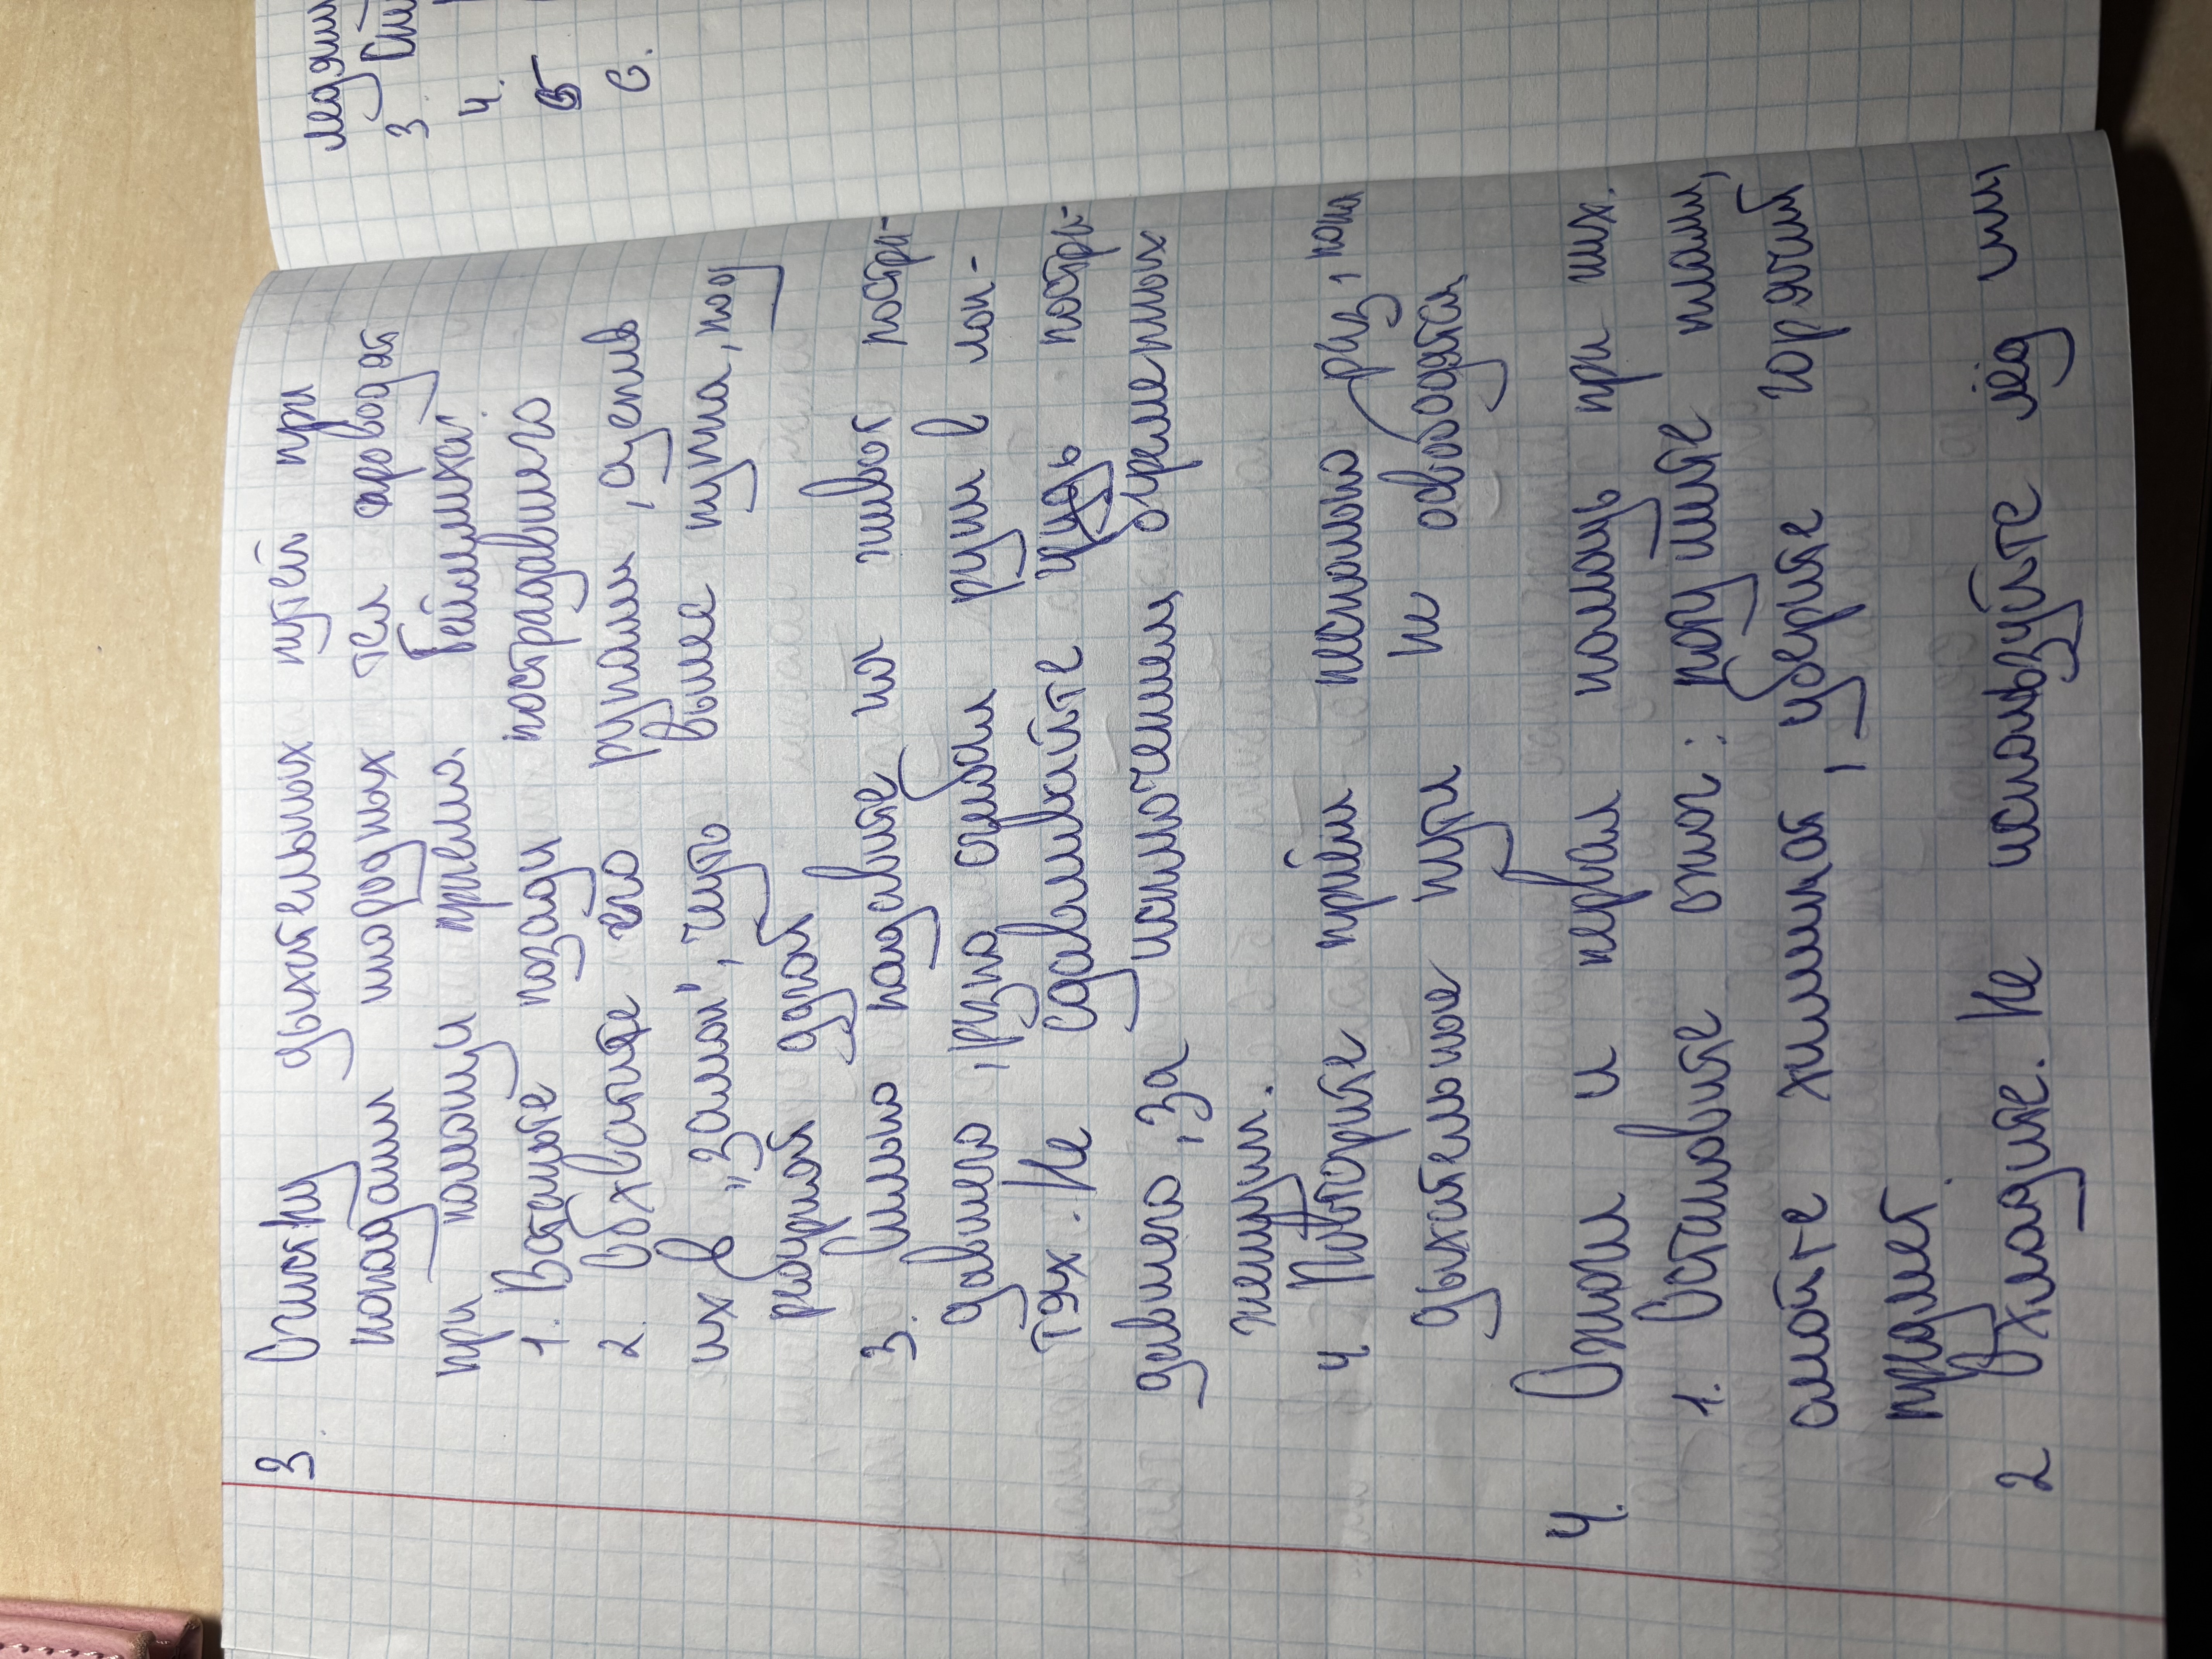 3 Очистку дыхательных путей при
попадании инородных тел проводят
при помощи приема Геймлиха:
1. Встаньте позади пострадавшего
2. Обхватите его руками, сцепив
их в "замок", чуть выше пупка, под
реберной дугой
3. Сильно надавите на живот постра-
давшего, резко сгибая руки в лок-
тях. Не сдавливайте грудь постра-
давшего, за исключением беременных
женщин.
4. Повторите приём несколько раз, пока
дыхательные пути не освободятся
4. Ожоги и первая помощь при них.
1. Остановите ожог: потушите пламя,
смойте химикат, уберите горячий
предмет.
2 Охладите. Не используйте лёд или
ледян
3
4.
5
6.